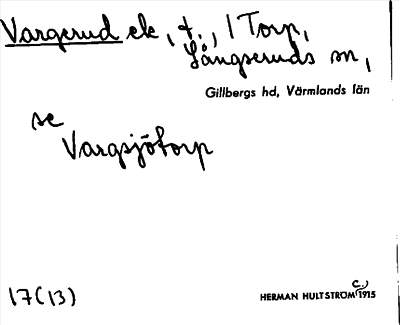 Vargerud ek, t., / Torp,
Långseruds sn,
Gillbergs hd, Värmlands län
se
Vargsjötorp
17(13)
HERMAN HULTSTRÖM (C.) 1915